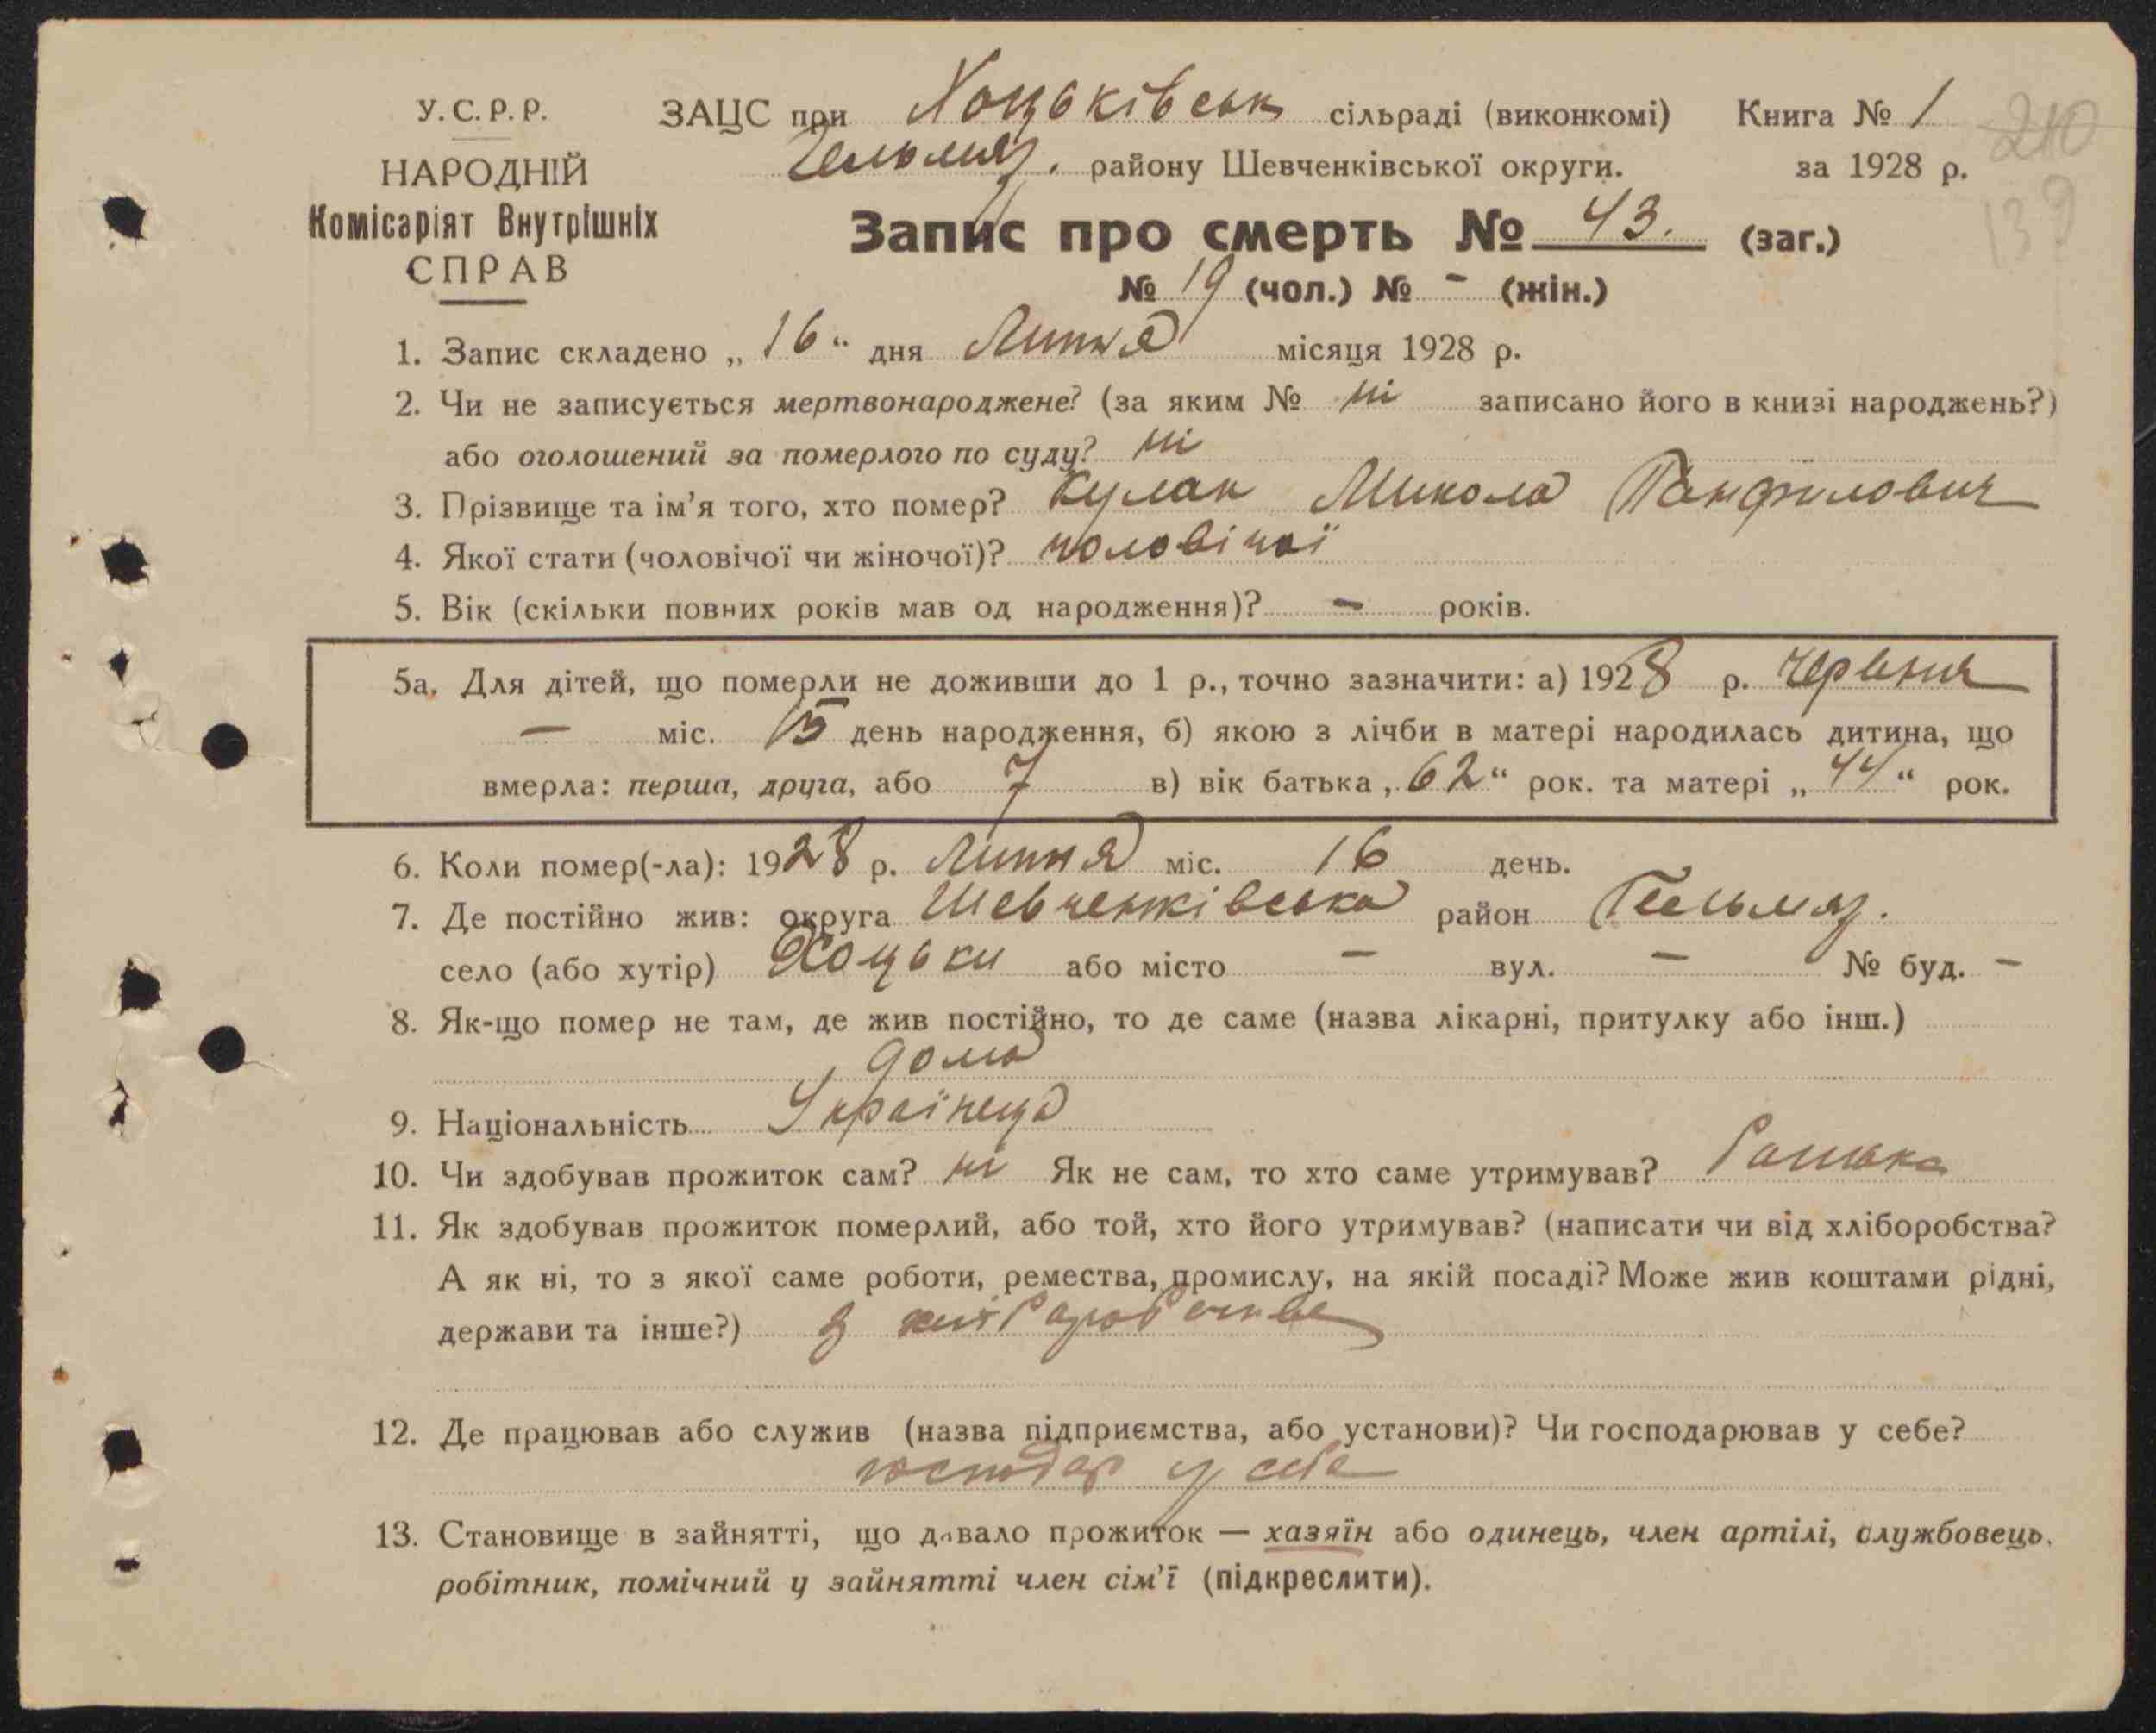 У.С.Р.Р. ЗАЦС при Хоцьківськ сільраді (виконкомі) Книга № 1
210
Гельмяз. району Шевченківської округи. за 1928 р.
НАРОДНІЙ
Комісаріят Внутрішніх
СПРАВ
139
Запис про смерть № 43. (заг.)
№ 19 (чол.) № - (жін.)
1. Запис складено „16“ дня Липня місяця 1928 р.
2. Чи не записується мертвонароджене? (за яким № ні записано його в книзі народжень?)
або оголошений за померлого по суду? ні
3. Прізвище та ім’я того, хто помер? Кулак Микола Панфилович
4. Якої стати (чоловічої чи жіночої)? чоловічої
5. Вік (скільки повних років мав од народження)? - років.
5а. Для дітей, що померли не доживши до 1 р., точно зазначити: а) 1928 р. червня
— міс. 15 день народження, б) якою з лічби в матері народилась дитина, що
вмерла: перша, друга, або 7 в) вік батька „62“ рок. та матері „44“ рок.
6. Коли помер(-ла): 1928 р. Липня міс. 16 день.
7. Де постійно жив: округа Шевченківська район Гельмяз.
село (або хутір) Хоцьки або місто — вул. — № буд. —
8. Як-що помер не там, де жив постійно, то де саме (назва лікарні, притулку або інш.)
дома
9. Національність Українець
10. Чи здобував прожиток сам? ні Як не сам, то хто саме утримував? батько
11. Як здобував прожиток померлий, або той, хто його утримував? (написати чи від хліборобства?
А як ні, то з якої саме роботи, ремества, промислу, на якій посаді? Може жив коштами рідні,
держави та інше?) з хліборобства
12. Де працював або служив (назва підприємства, або установи)? Чи господарював у себе?
господар у себе
13. Становище в зайнятті, що давало прожиток — хазяїн або одинець, член артілі, службовець,
робітник, помічний у зайнятті член сім’ї (підкреслити).